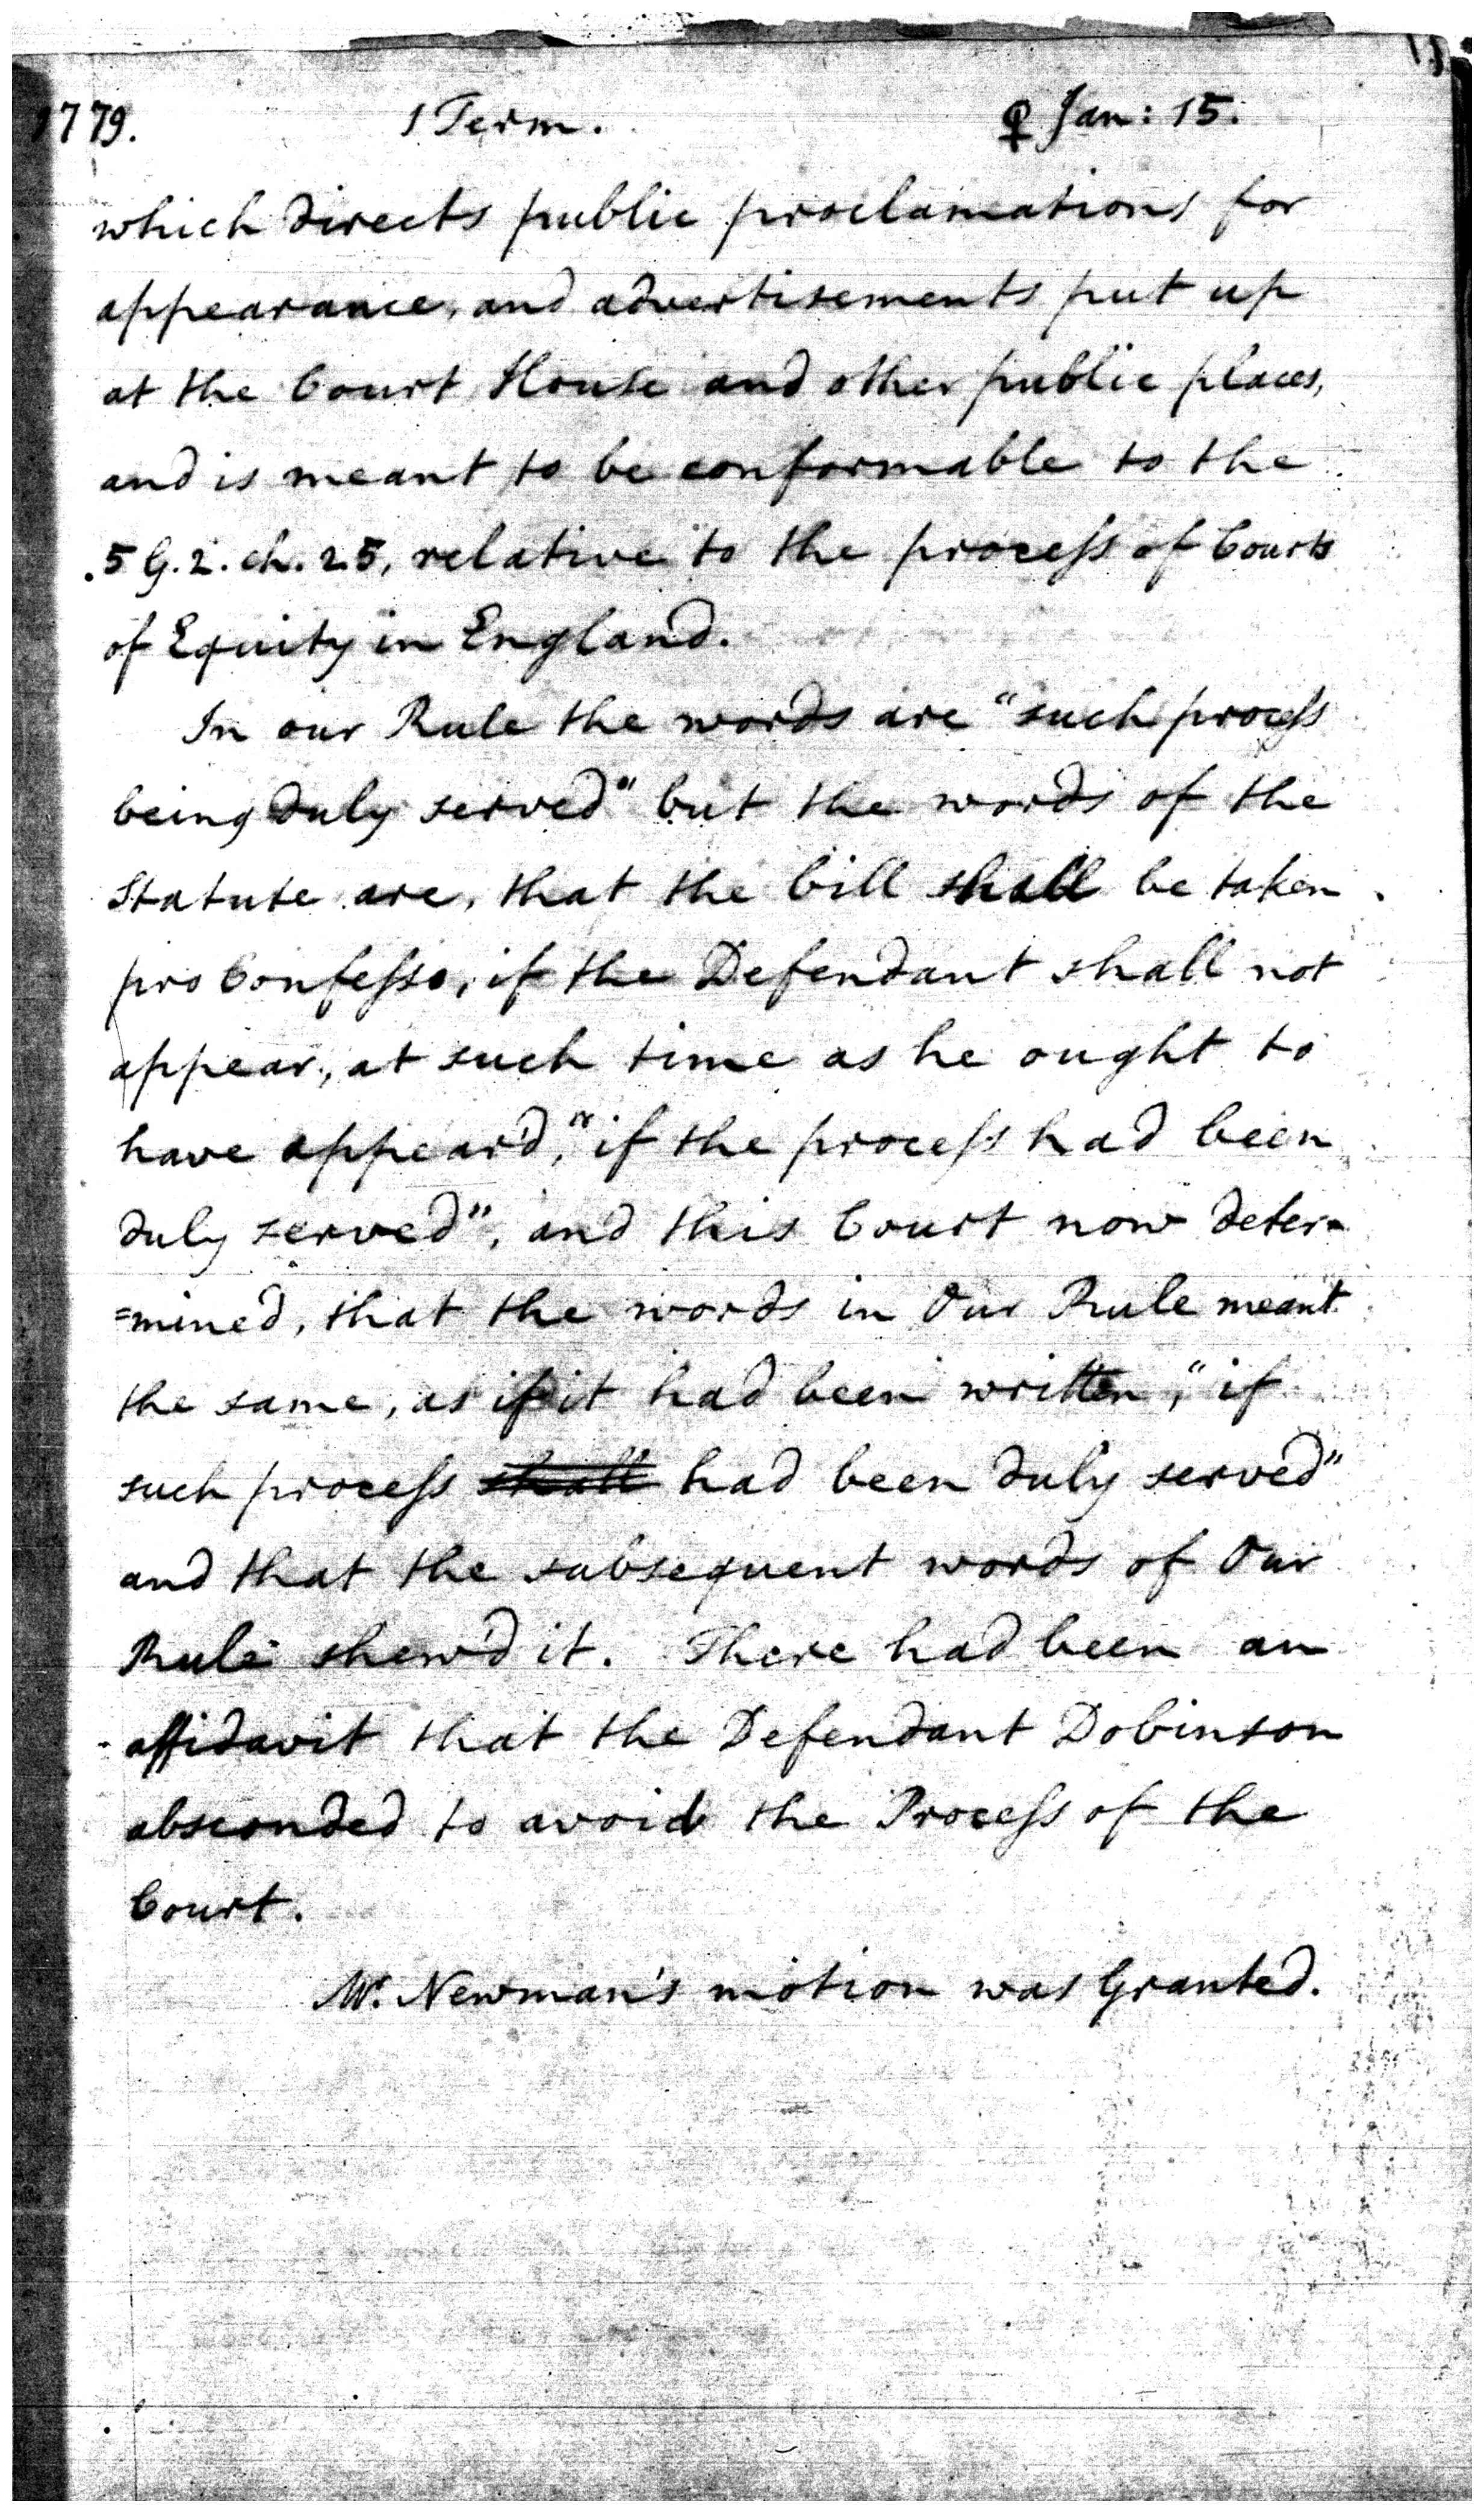 1779. 1 Term. ♀ Jan: 15.
which directs public proclamations for
appearance, and advertisements put up
at the Court House and other public places,
and is meant to be conformable to the
5 G. 2. ch. 25, relative to the process of Courts
of Equity in England.
In our Rule the words are "such process
being duly served" but the words of the
Statute are, that the bill shall be taken
pro Confesso, if the Defendant shall not
appear, at such time as he ought to
have appear'd, "if the process had been
duly served", and this Court now deter=
=mined, that the words in Our Rule meant
the same, as if it had been written, "if
such process shall had been duly served"
and that the subsequent words of Our
Rule shew'd it. There had been an
affidavit that the Defendant Dobinson
absconded to avoid the Process of the
Court.
Mr. Newman's motion was Granted.